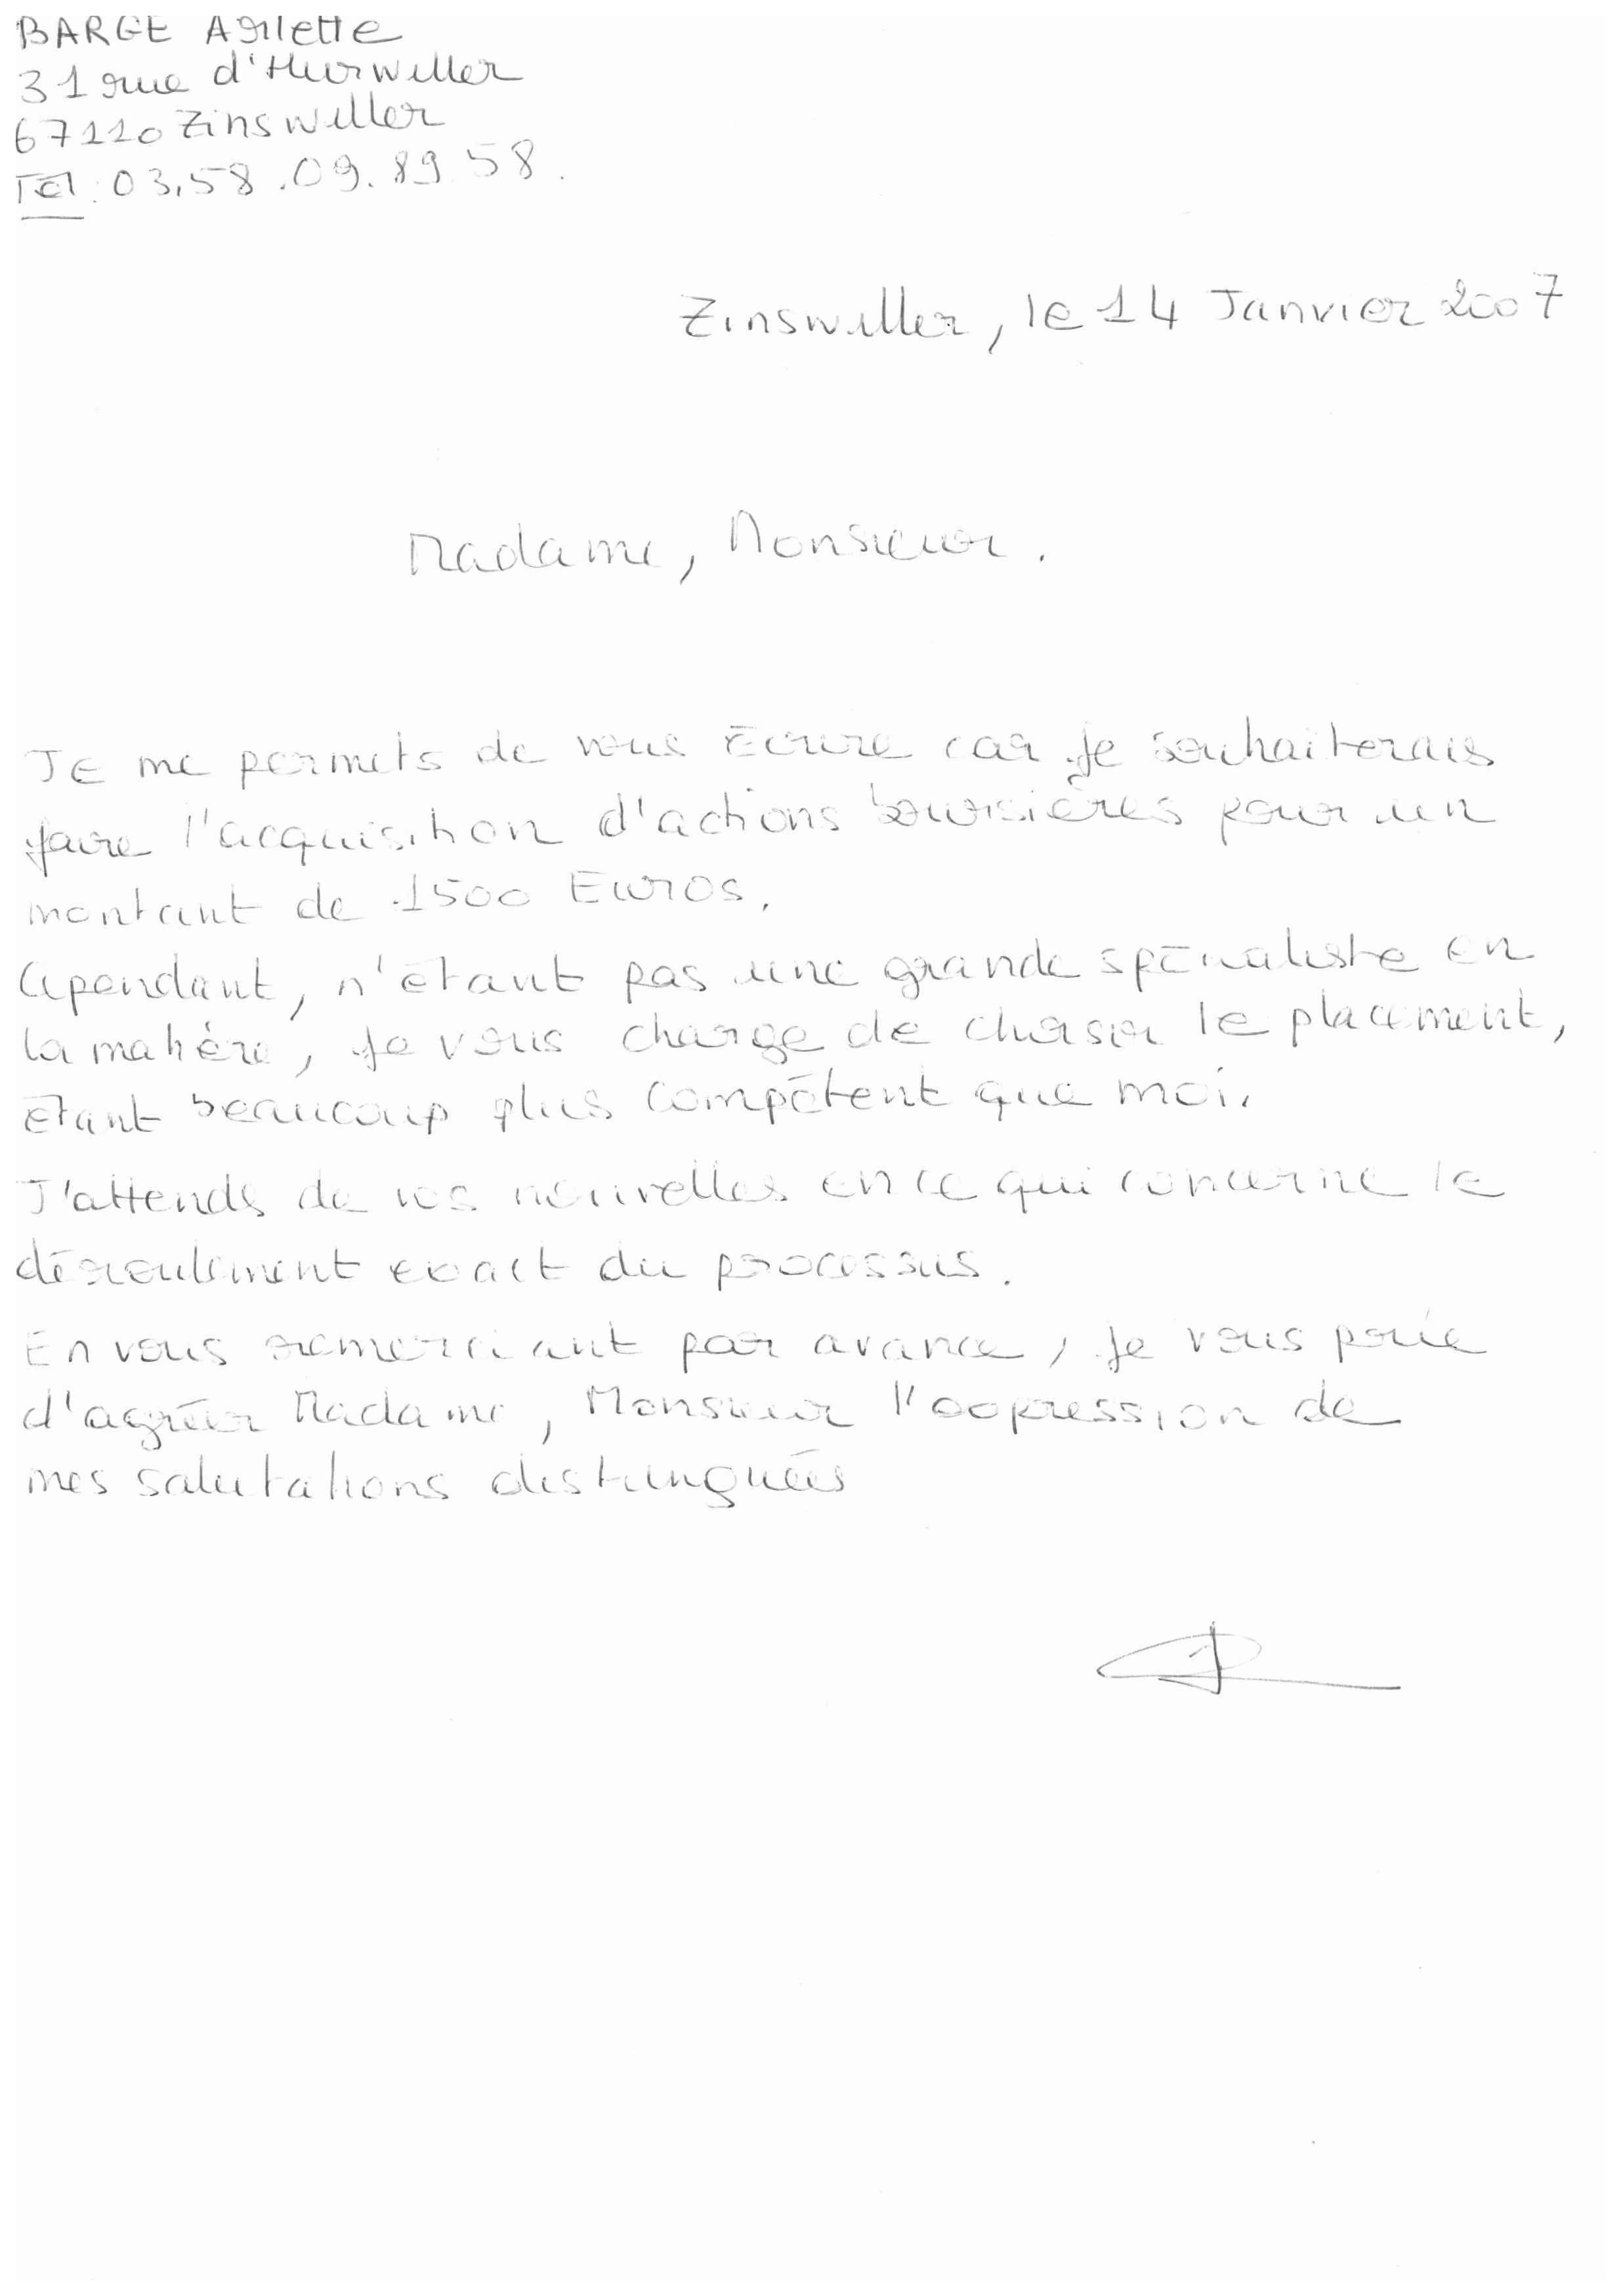 BARGE Arlette
31 rue d'Hurwiller
67110 Zinswiller
Tél : 03.58.09.89.58.
Zinswiller, le 14 Janvier 2007
Madame, Monsieur.
Je me permets de vous écrire car je souhaiterais
faire l'acquisition d'actions boursières pour un
montant de 1500 Euros.
Cependant, n'étant pas une grande spécialiste en
la matière, je vous charge de choisir le placement,
étant beaucoup plus compétent que moi.
J'attends de vos nouvelles en ce qui concerne le
déroulement exact du processus.
En vous remerciant par avance, je vous prie
d'agréer Madame, Monsieur l'expression de
mes salutations distinguées